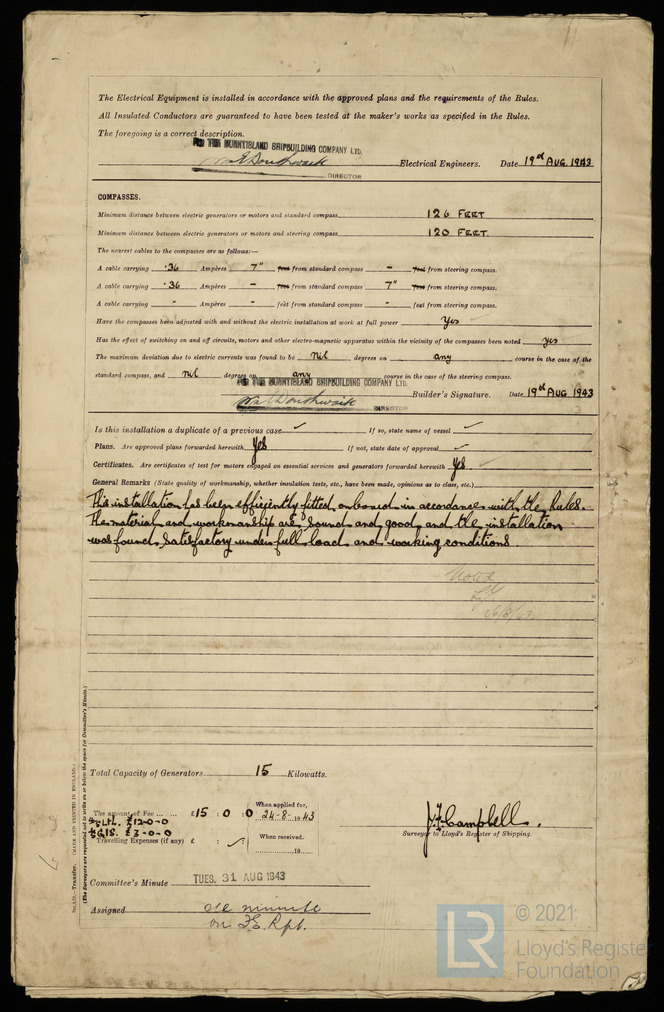 The Electrical Equipment is installed in accordance with the approved plans and the requirements of the Rules.
All Insulated Conductors are guaranteed to have been tested at the maker's works as specified in the Rules.
The foregoing is a correct description.
FOR THE BURNTISLAND SHIPBUILDING COMPANY LTD.
Electrical Engineers. Date 19th AUG 1943
DIRECTOR
COMPASSES.
Minimum distance between electric generators or motors and standard compass 126 FEET
Minimum distance between electric generators or motors and steering compass 120 FEET.
The nearest cables to the compasses are as follows:—
A cable carrying ·36 Ampères 7" feet from standard compass - feet from steering compass.
A cable carrying ·36 Ampères - feet from standard compass 7" feet from steering compass.
A cable carrying - Ampères - feet from standard compass - feet from steering compass.
Have the compasses been adjusted with and without the electric installation at work at full power Yes
Has the effect of switching on and off circuits, motors and other electro-magnetic apparatus within the vicinity of the compasses been noted yes
The maximum deviation due to electric currents was found to be nil degrees on any course in the case of the
standard compass, and nil degrees on any course in the case of the steering compass.
FOR THE BURNTISLAND SHIPBUILDING COMPANY LTD.
Builder's Signature. Date 19th AUG 1943
DIRECTOR
Is this installation a duplicate of a previous case ✓ If so, state name of vessel ✓
Plans. Are approved plans forwarded herewith Yes If not, state date of approval ✓
Certificates. Are certificates of test for motors engaged on essential services and generators forwarded herewith Yes ✓
General Remarks (State quality of workmanship, whether insulation tests, etc., have been made, opinions as to class, etc.)
This installation has been efficiently fitted on board in accordance with the Rules.
The material and workmanship are sound and good and the installation
was found satisfactory under full load and working conditions.
Noted
Total Capacity of Generators 15 Kilowatts.
The amount of Fee ... £15 : 0 : 0 When applied for, 24-8-1943
£12-0-0
£3-0-0
Travelling Expenses (if any) £ : ✓ : When received, 19
J.F. Campbell.
Surveyor to Lloyd's Register of Shipping.
Committee's Minute TUES. 31 AUG 1943
Assigned See minute
on F.E. Rpt.
5m.4.26.—Transfer. (MADE AND PRINTED IN ENGLAND.)
(The Surveyors are requested not to write on or below the space for Committee's Minute.)
LR © 2021:
Lloyd's Register
Foundation